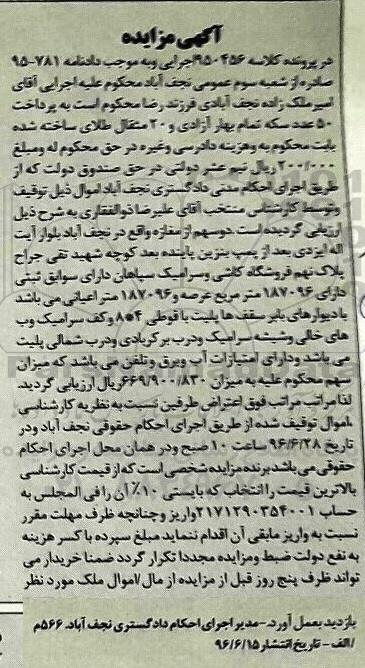 آگهی مزایده
در پرونده کلاسه ۹۵۰۴۵۶اجرایی وبه موجب دادنامه ۷۸۱-۹۵
صادره از شعبه سوم عمومی نجف آباد محکوم علیه اجرایی آقای
امیر ملک زاده نجف آبادی فرزند رضا محکوم است به پرداخت
۵۰ عدد سکه تمام بهار آزادی و ۲۰ مثقال طلای ساخته شده
بابت محکوم به وهزینه دادرسی وغیره در حق محکوم له ومبلغ
۲۰۰/۰۰۰ ریال نیم عشر دولتی در حق صندوق دولت که از
طریق اجرای احکام مدنی دادگستری نجف آباد اموال ذیل توقیف
وتوسط کارشناس منتخب آقای علیرضا ذوالفقاری به شرح ذیل
ارزیابی گردیده است. دوسهم از مغازه واقع در نجف آباد بلوار آیت
اله ایزدی بعد از پمپ بنزین پاینده بعد کوچه شهید تقی جراح
پلاک نهم فروشگاه کاشی وسرامیک سپاهان دارای سوابق ثبتی
دارای ۱۸۷۰۹۶ متر مربع عرصه و ۱۸۷۰۹۶ متر اعیانی می باشد
با دیوارهای بایر سقف ها پلیت با قوطی ۴*۸ وکف سرامیک وب
های خالی وشیشه سرامیک ودرب بر کربادی ودرب شمالی پلیت
می باشد ودارای امتیازات آب وبرق و تلفن می باشد که میزان
سهم محکوم علیه به میزان ۶۶۹/۹۰۰/۸۳۰ریال ارزیابی گردید.
لذا مراتب مراتب فوق اعتراض طرفین نسبت به نظریه کارشناسی
،اموال توقیف شده از طریق اجرای احکام حقوقی نجف آباد ودر
تاریخ ۹۶/۶/۲۸ ساعت ۱۰ صبح ودر همان محل اجرای احکام
حقوقی می باشد برنده مزایده شخصی است که از قیمت کارشناسی
بالاترین قیمت را انتخاب که بایستی ۱۰٪ آن را فی المجلس به
حساب ۲۱۷۱۲۹۰۳۵۴۰۰۱واریز و چنانچه ظرف مهلت مقرر
نسبت به واریز مابقی آن اقدام ننماید مبلغ سپرده با کسر هزینه
به نفع دولت ضبط ومزایده مجددا تکرار گردد ضمنا خریدار می
تواند ظرف پنج روز قبل از مزایده از مال/اموال ملک مورد نظر
بازدید بعمل آورد.-مدیر اجرای احکام دادگستری نجف آباد. ۵۶۶م
/الف - تاریخ انتشار ۹۶/۶/۱۵